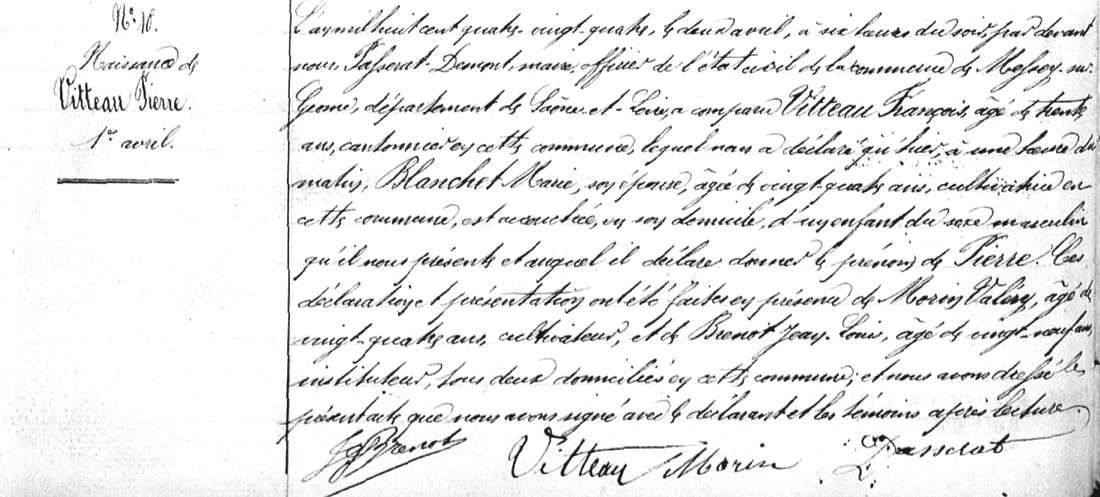 N.º 18.
Naissance de
Vitteau Pierre.
1er avril.
L'an mil huit cent quatre-vingt-quatre, le deux avril, à six heures du soir, par devant
nous, Passerat-Demont, maire, officier de l'état civil de la commune de Messey-sur-
Grosne, département de Saône-et-Loire, a comparu Vitteau François, âgé de trente
ans, cantonnier en cette commune, lequel nous a déclaré qu'hier, à une heure du
matin, Blanchet Marie, son épouse, âgée de vingt-quatre ans, cultivatrice en
cette commune, est accouchée, en son domicile, d'un enfant du sexe masculin
qu'il nous présente et auquel il déclare donner le prénom de Pierre. Ces
déclaration et présentation ont été faites en présence de Morin Valéry, âgé de
vingt-quatre ans, cultivateur, et de Brenot Jean-Louis, âgé de vingt-neuf ans,
instituteur, tous deux domiciliés en cette commune; et nous avons dressé le
présent acte que nous avons signé avec le déclarant et les témoins après lecture
Brenot Vitteau Morin Passerat